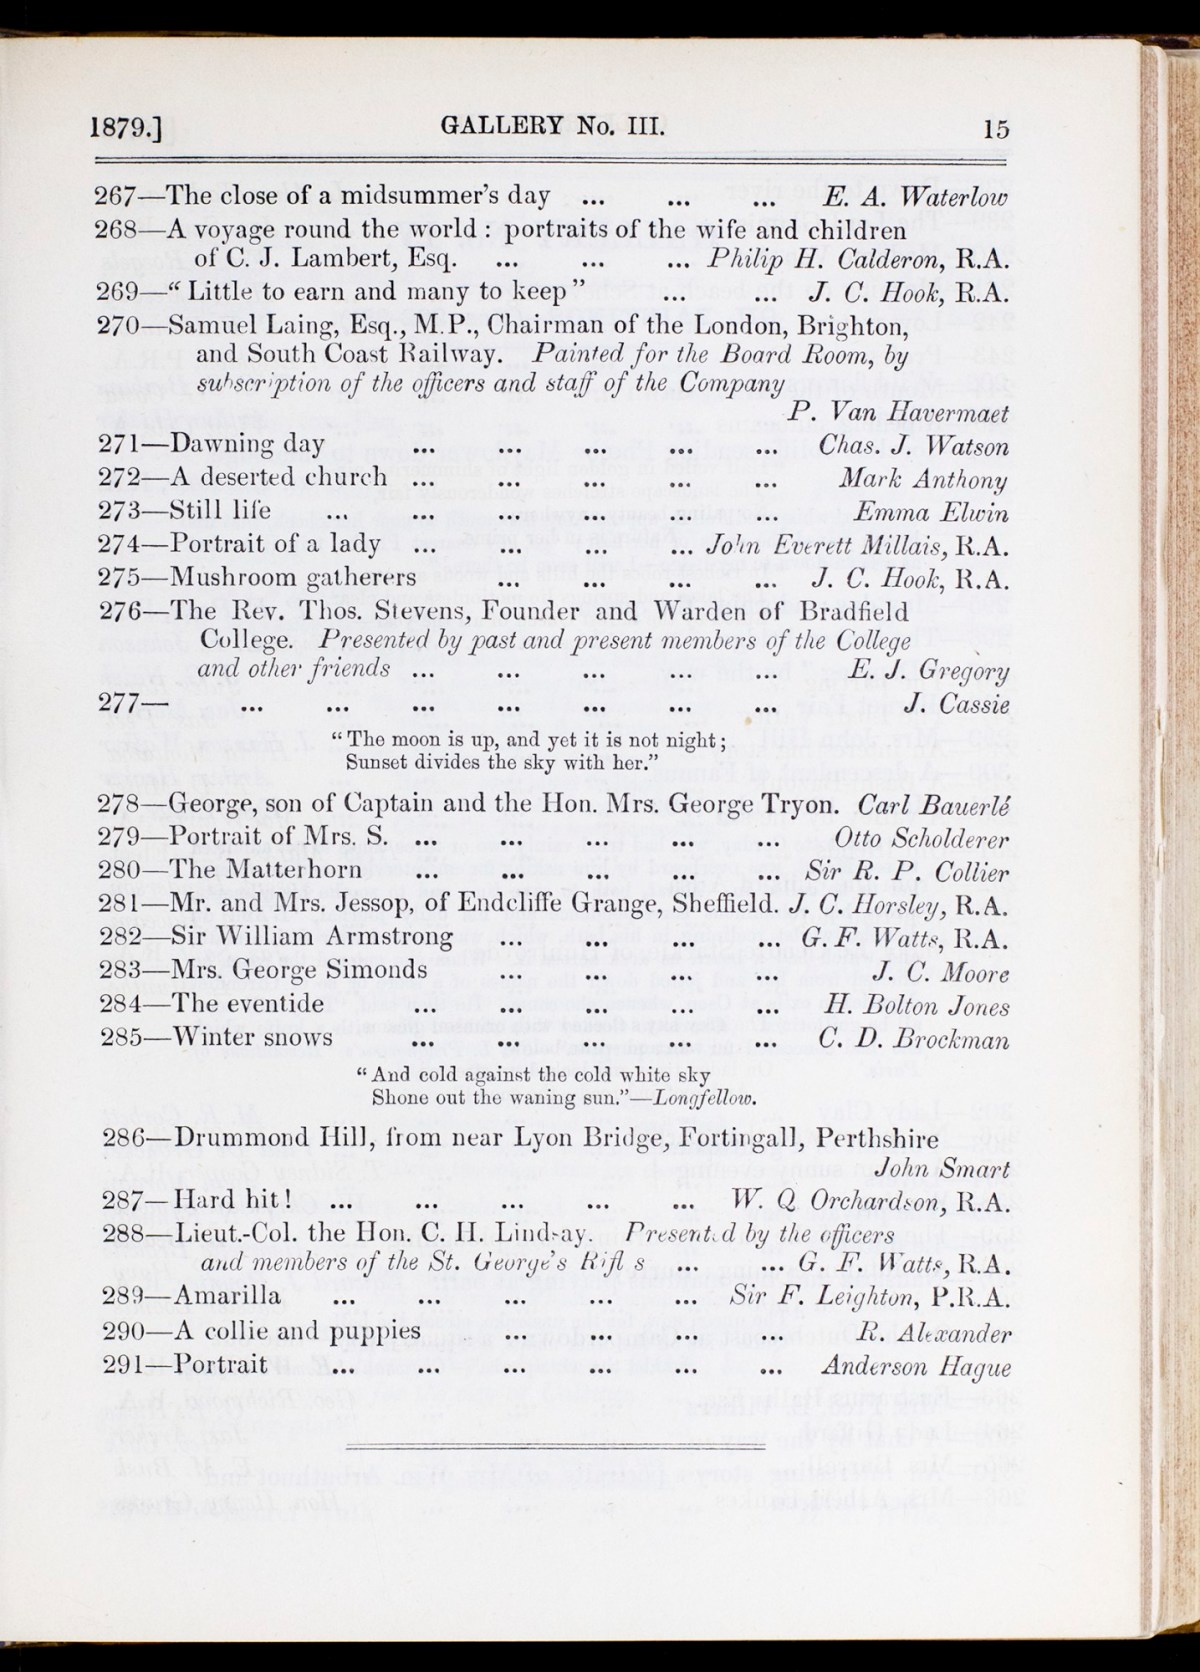 1879.] GALLERY No. III. 15
267—The close of a midsummer's day ... ... ... E. A. Waterlow
268—A voyage round the world : portraits of the wife and children
of C. J. Lambert, Esq. ... ... ... Philip H. Calderon, R.A.
269—“ Little to earn and many to keep ” ... ... J. C. Hook, R.A.
270—Samuel Laing, Esq., M.P., Chairman of the London, Brighton,
and South Coast Railway. Painted for the Board Room, by
subscription of the officers and staff of the Company
P. Van Havermaet
271—Dawning day ... ... ... ... ... Chas. J. Watson
272—A deserted church ... ... ... ... ... Mark Anthony
273—Still life ... ... ... ... ... ... Emma Elwin
274—Portrait of a lady ... ... ... ... John Everett Millais, R.A.
275—Mushroom gatherers ... ... ... ... J. C. Hook, R.A.
276—The Rev. Thos. Stevens, Founder and Warden of Bradfield
College. Presented by past and present members of the College
and other friends ... ... ... ... ... E. J. Gregory
277— ... ... ... ... ... ... ... J. Cassie
“ The moon is up, and yet it is not night ;
Sunset divides the sky with her.”
278—George, son of Captain and the Hon. Mrs. George Tryon. Carl Bauerlé
279—Portrait of Mrs. S. ... ... ... ... ... Otto Scholderer
280—The Matterhorn ... ... ... ... ... Sir R. P. Collier
281—Mr. and Mrs. Jessop, of Endcliffe Grange, Sheffield. J. C. Horsley, R.A.
282—Sir William Armstrong ... ... ... ... G. F. Watts, R.A.
283—Mrs. George Simonds ... ... ... ... J. C. Moore
284—The eventide ... ... ... ... ... H. Bolton Jones
285—Winter snows ... ... ... ... ... C. D. Brockman
“ And cold against the cold white sky
Shone out the waning sun.”—Longfellow.
286—Drummond Hill, from near Lyon Bridge, Fortingall, Perthshire
John Smart
287—Hard hit ! ... ... ... ... ... W. Q. Orchardson, R.A.
288—Lieut.-Col. the Hon. C. H. Lindsay. Presented by the officers
and members of the St. George's Rifl s ... ... G. F. Watts, R.A.
289—Amarilla ... ... ... ... ... Sir F. Leighton, P.R.A.
290—A collie and puppies ... ... ... ... R. Alexander
291—Portrait ... ... ... ... ... ... Anderson Hague